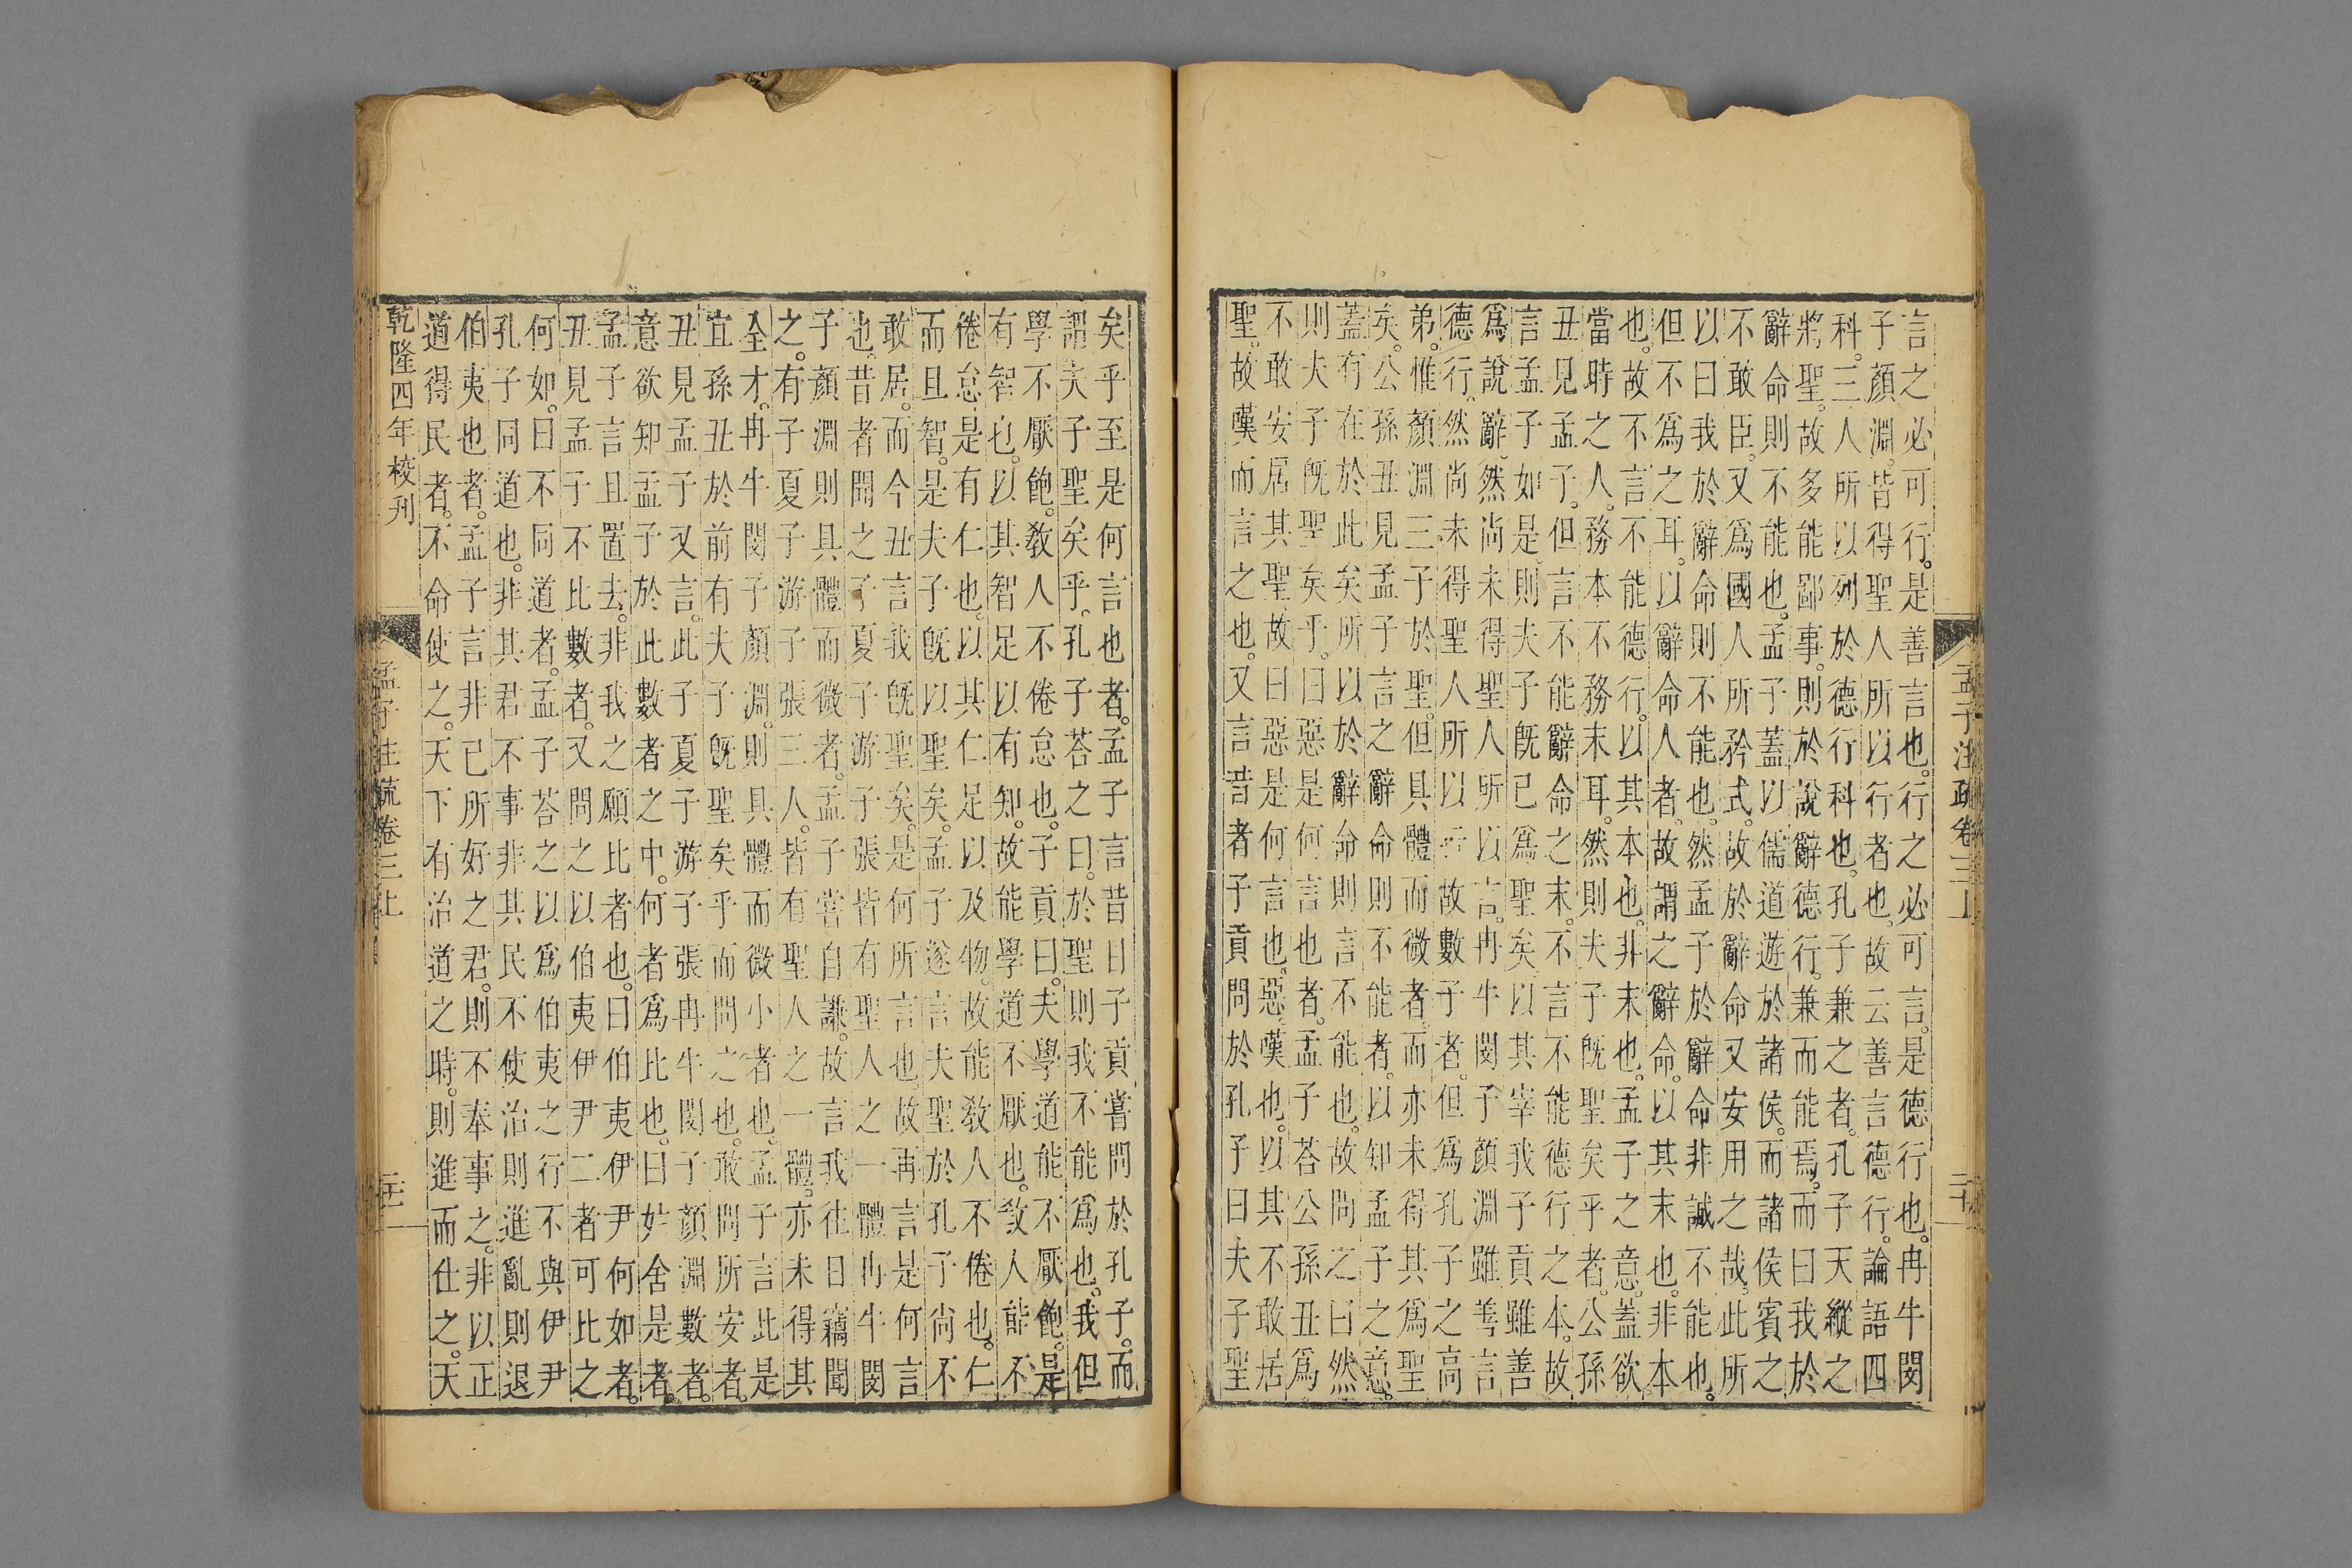 言之必可行是善言也行之必可言是德行也冉牛閔
子顏淵皆得聖人所以行者也故云善言德行論語四
科三人所以列於德行科也孔子兼之者孔子天縱之
將聖故多能鄙事則於說辭德行兼而能焉而曰我於
辭命則不能也孟子蓋以儒道遊於諸侯而諸侯賓之
不敢臣又為國人所矜式故於辭命又安用之哉此所
以曰我於辭命則不能也然孟子於辭命非誠不能也
但不為之耳以辭命人者故謂之辭命以其末也非本
也故不言不能德行以其本也非末也孟子之意蓋欲
當時之人務本不務末耳然則夫子既聖矣乎者公孫
丑見孟子但言不能辭命之末不言不能德行之本故
言孟子如是則夫子既已為聖矣以其宰我子貢雖善
為說辭然尚未得聖人所以言冉牛閔子顏淵雖善言
德行然尚未得聖人所以行故數子者但為孔子之高
弟惟顏淵三子於聖但具體而微者而亦未得其為聖
矣公孫丑見孟子言之辭命則不能者以知孟子之意
蓋有在於此矣所以於辭命則言不能也故問之曰然
則夫子既聖矣乎曰惡是何言也者孟子荅公孫丑為
不敢安居其聖故曰惡是何言也惡嘆也以其不敢居
聖故嘆而言之也又言昔者子貢問於孔子曰夫子聖
孟子注疏卷三上
二十
矣乎至是何言也者孟子言昔日子貢嘗問於孔子而
謂夫子聖矣乎孔子荅之曰於聖則我不能為也我但
學不厭飽教人不倦怠也子貢曰夫學道能不厭飽是
有智也以其智足以有知故能學道不厭也教人能不
倦怠是有仁也以其仁足以及物故能教人不倦也仁
而且智是夫子既以聖矣孟子遂言夫聖於孔子尚不
敢居而今丑言我既聖矣是何所言也故再言是何言
也昔者聞之子夏子游子張皆有聖人之一體冉牛閔
子顏淵則具體而微者孟子嘗自謙故言我往日竊聞
之有子夏子游子張三人皆有聖人之一體亦未得其
全才冉牛閔子顏淵則具體而微小者也孟子言此是
宜孫丑於前有夫子既聖矣乎而問之也敢問所安者
丑見孟子又言此子夏子游子張冉牛閔子顏淵數者
意欲知孟子於此數者之中何者為比也曰姑舍是者
孟子言且置去非我之願比者也曰伯夷伊尹何如者
丑見孟子不比數者又問之以伯夷伊尹二者可比之
何如曰不同道者孟子荅之以為伯夷之行不與伊尹
孔子同道也非其君不事非其民不使治則進亂則退
伯夷也者孟子言非己所好之君則不奉事之非以正
道得民者不命使之天下有治道之時則進而仕之天
乾隆四年校刊
孟子注疏卷三上